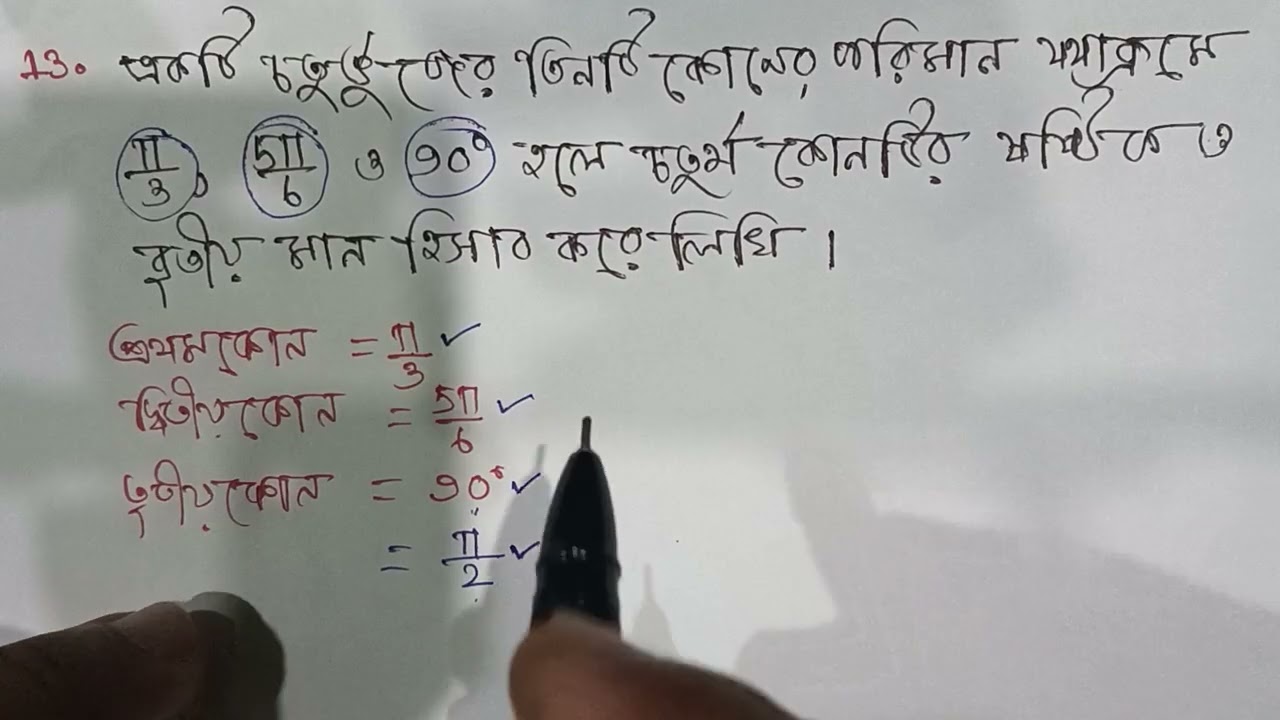 13. একটি চতুর্ভুজের তিনটি কোনের পরিমান যথাক্রমে
π/3, 5π/6 ও 90° হলে চতুর্থ কোনটির ষষ্টিক ও
বৃত্তীয় মান হিসাব করে লিখি।
প্রথম কোন = π/3 ✓
দ্বিতীয় কোন = 5π/6 ✓
তৃতীয় কোন = 90° ✓
= π/2 ✓